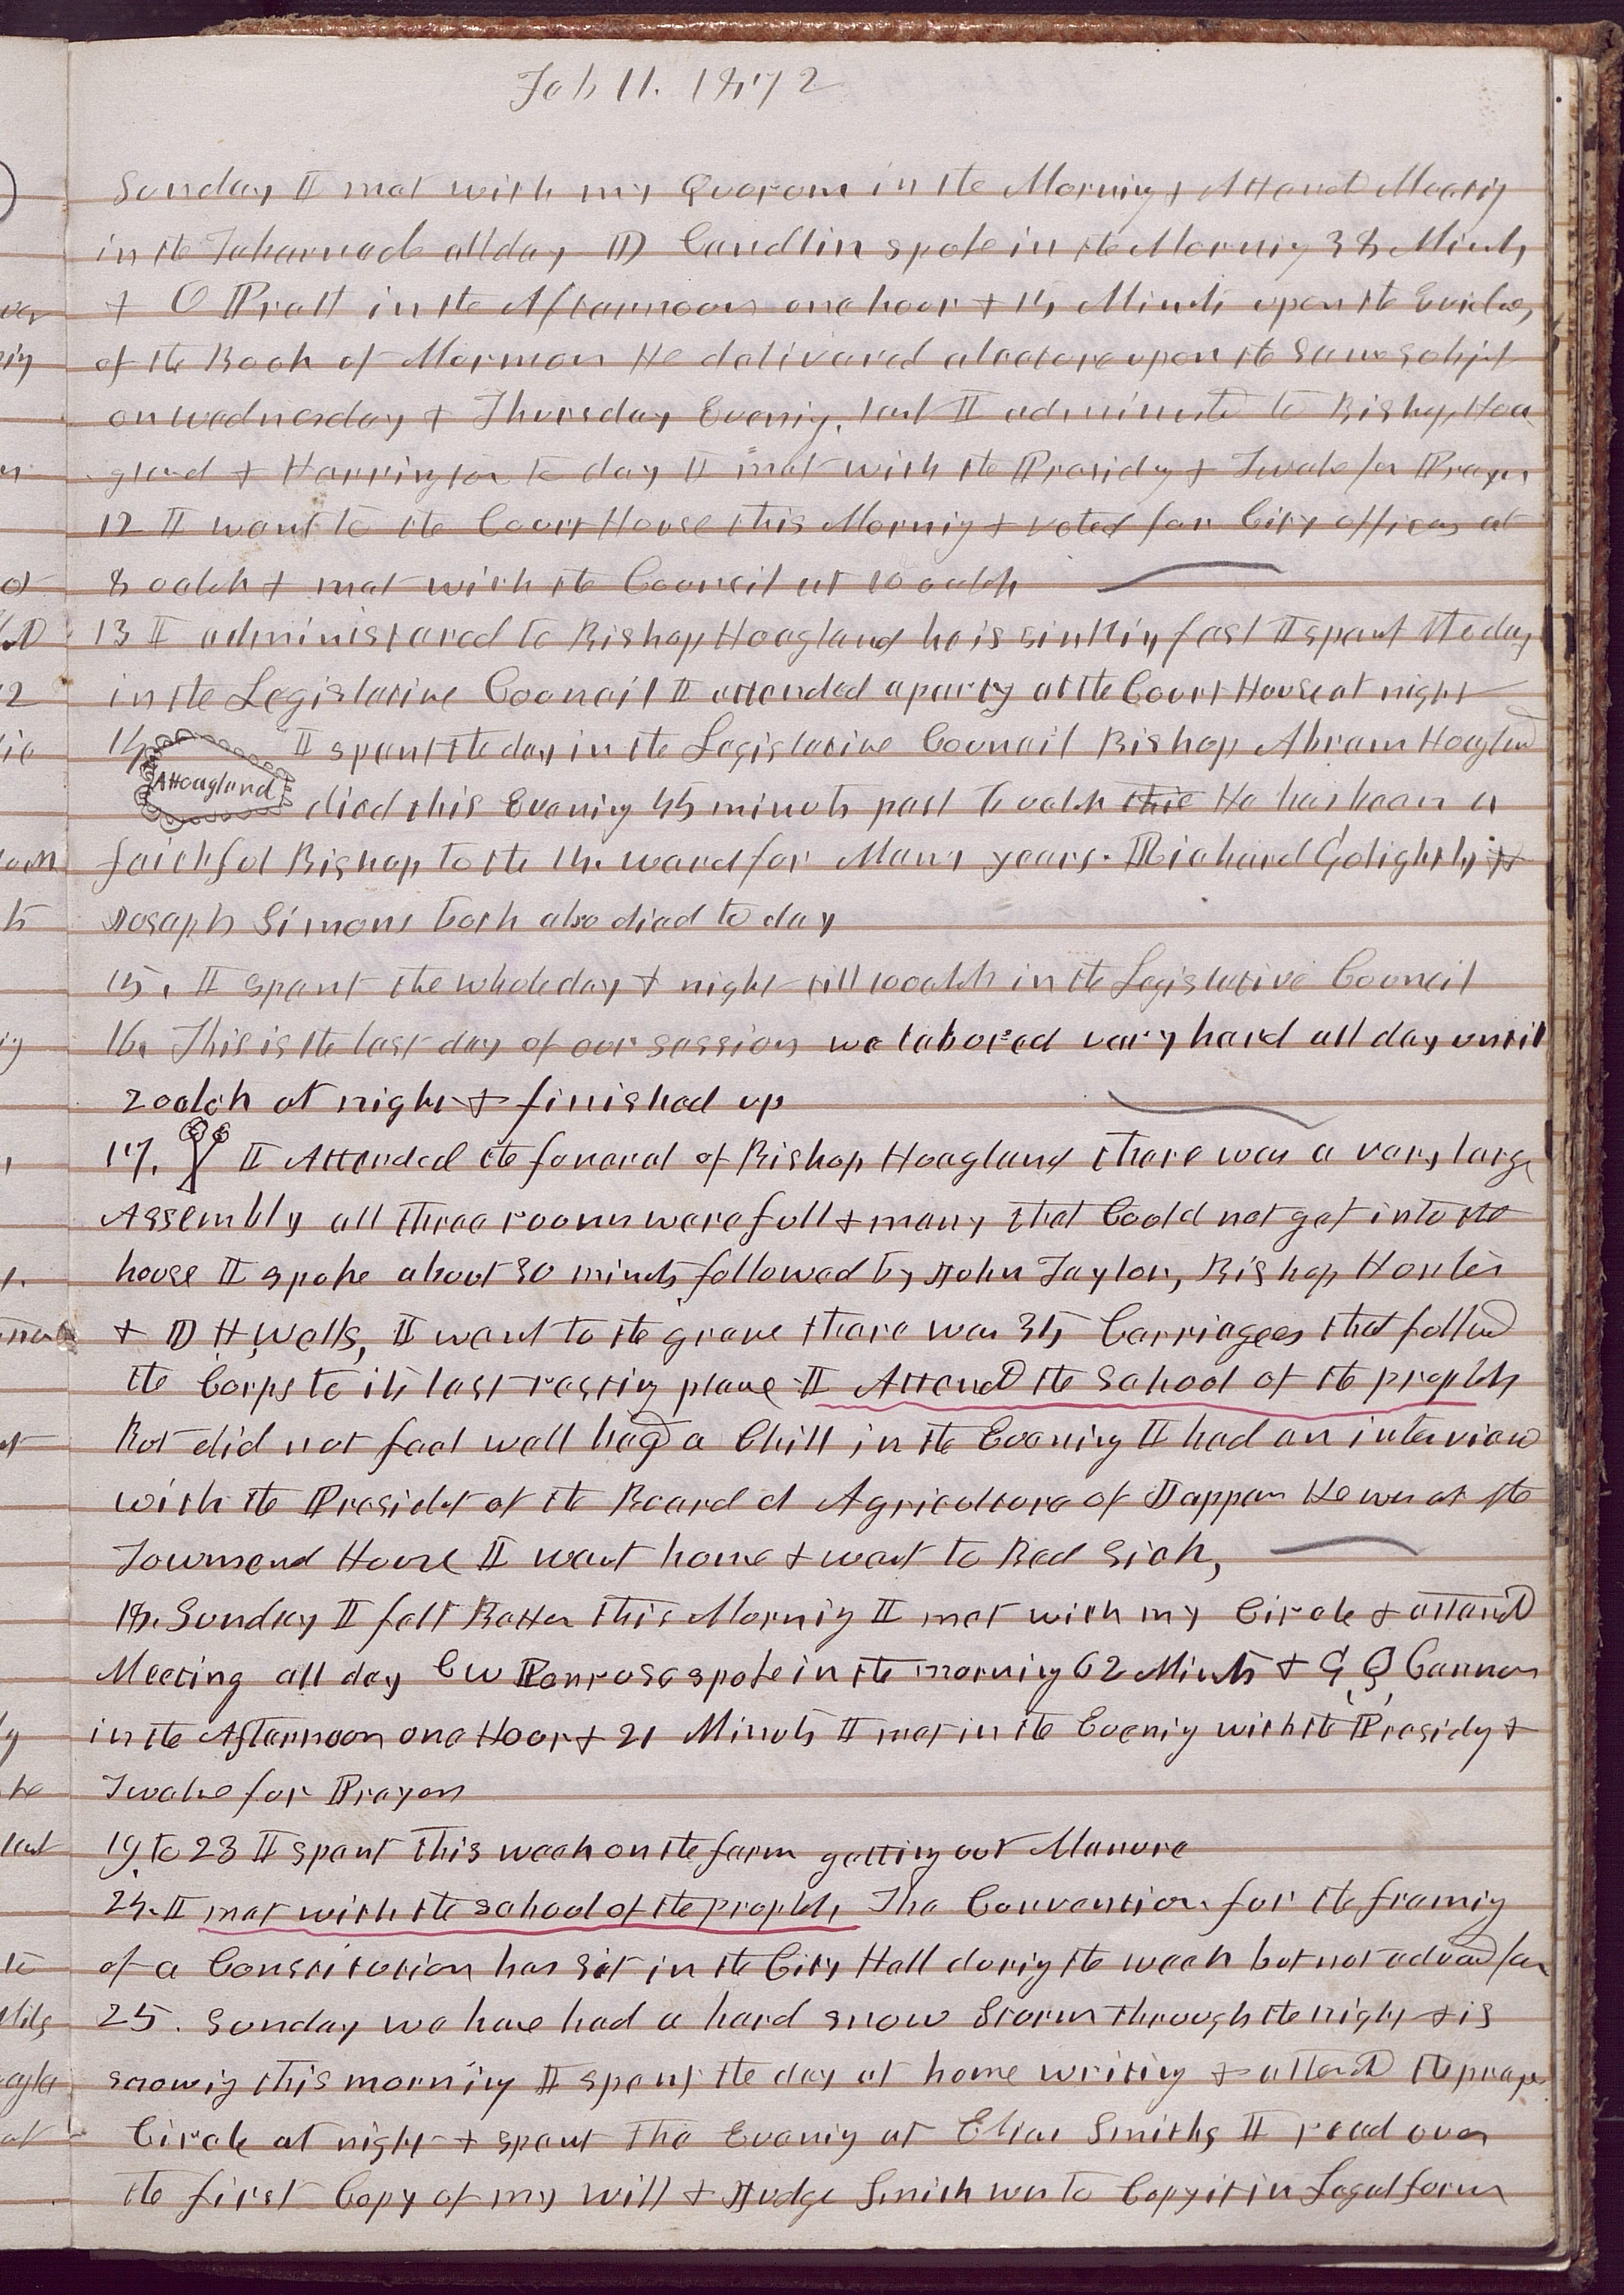 Feb 11. 1872
Sunday I met with my Quorum in the Morning & Attend Meeting
in the Tabernacle all day D Candlin spoke in the Morning 38 Minuts
& O Pratt in the Afternoon one hour & 15 Minuts upon the Evidence
of the Book of Mormon He delivered a lecture upon the same subject
on wednesday & Thursday Evening. last I administed to Bishop Hoa
gland & Harrington to day I met with the Presidy & Twelve for Prayer
12 I went to the Court House this Morning & voted for City officers at
8 oclok & met with the Council at 10 oclok
13 I administered to Bishop Hoagland he is sinking fast I spent the day
in the Legislative Council I attended a party at the Court House at night
14 I spent the day in the Legislative Council Bishop Abram Hoagland
A Hoagland died this Evening 45 minuts past 6 oclok this He has been a
faithful Bishop to the 14 ward for Many years. Richard Golightly &
Joseph Simons both also died to day
15. I spent the whole day & night till 10 oclok in the Legislative Council
16. This is the last day of our session we labored very hard all day until
2 oclok at night & finished up
17. I Attended the funeral of Bishop Hoagland there was a very large
Assembly all three rooms were full & many that Could not get into the
house I spoke about 30 minuts followed by John Taylor, Bishop Hunter
& D H Wells, I went to the grave there was 35 Carriages that followed
the Corps to its last resting place I Attend the school of the prophets
But did not feel well had a Chill in the Evening I had an interview
with the Presidet of the Board of Agriculture of Jappan He was at the
Townsend House I went home & went to Bed sick,
18. Sunday I felt Better this Morning I met with my Circle & attend
Meeting all day C W Penrose spoke in the morning 62 Minuts & G, Q, Cannon
in the Afternoon one Hour & 21 Minuts I met in the Evening with the Presidy &
Twelve for Prayer
19 to 23 I spent this week on the farm getting out Manure
24. I met with the school of the prophets The Convention for the framing
of a Constitution has sit in the City Hall during the week but not advancd far
25. Sunday we have had a hard snow Storm through the night & is
snowing this morning I spent the day at home writing & attend the prayer
Circle at night & spent the Evening at Elias Smiths I read over
the first Copy of my will & Judge Smith was to Copy it in Legal form